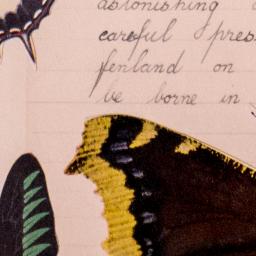 astonishing
careful & pres
fenland on
be borne in